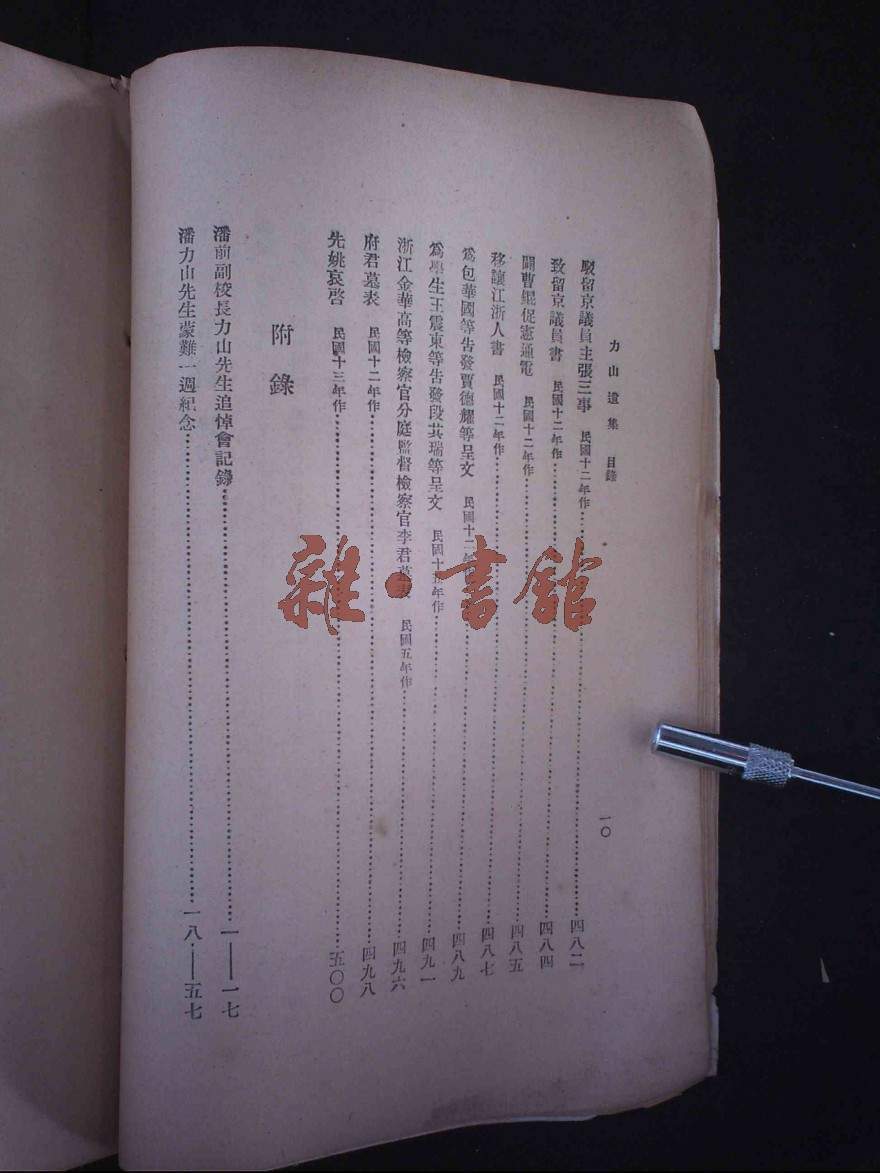 力山遺集 目錄
一〇
駁留京議員主張三事 民國十二年作 四八二
致留京議員書 民國十二年作 四八四
闢曹錕促憲通電 民國十二年作 四八五
移讓江浙人書 民國十二年作 四八七
爲包華國等告發賈德耀等呈文 民國十二年 四八九
爲學生王震東等告發段其瑞等呈文 民國十五年作 四九一
浙江金華高等檢察官分庭監督檢察官李君墓表 民國五年作 四九六
府君墓表 民國十二年作 四九八
先姚哀啓 民國十三年作 五〇〇
附錄
潘前副校長力山先生追悼會記錄 一——一七
潘力山先生蒙難一週紀念 一八——五七
雜·書館